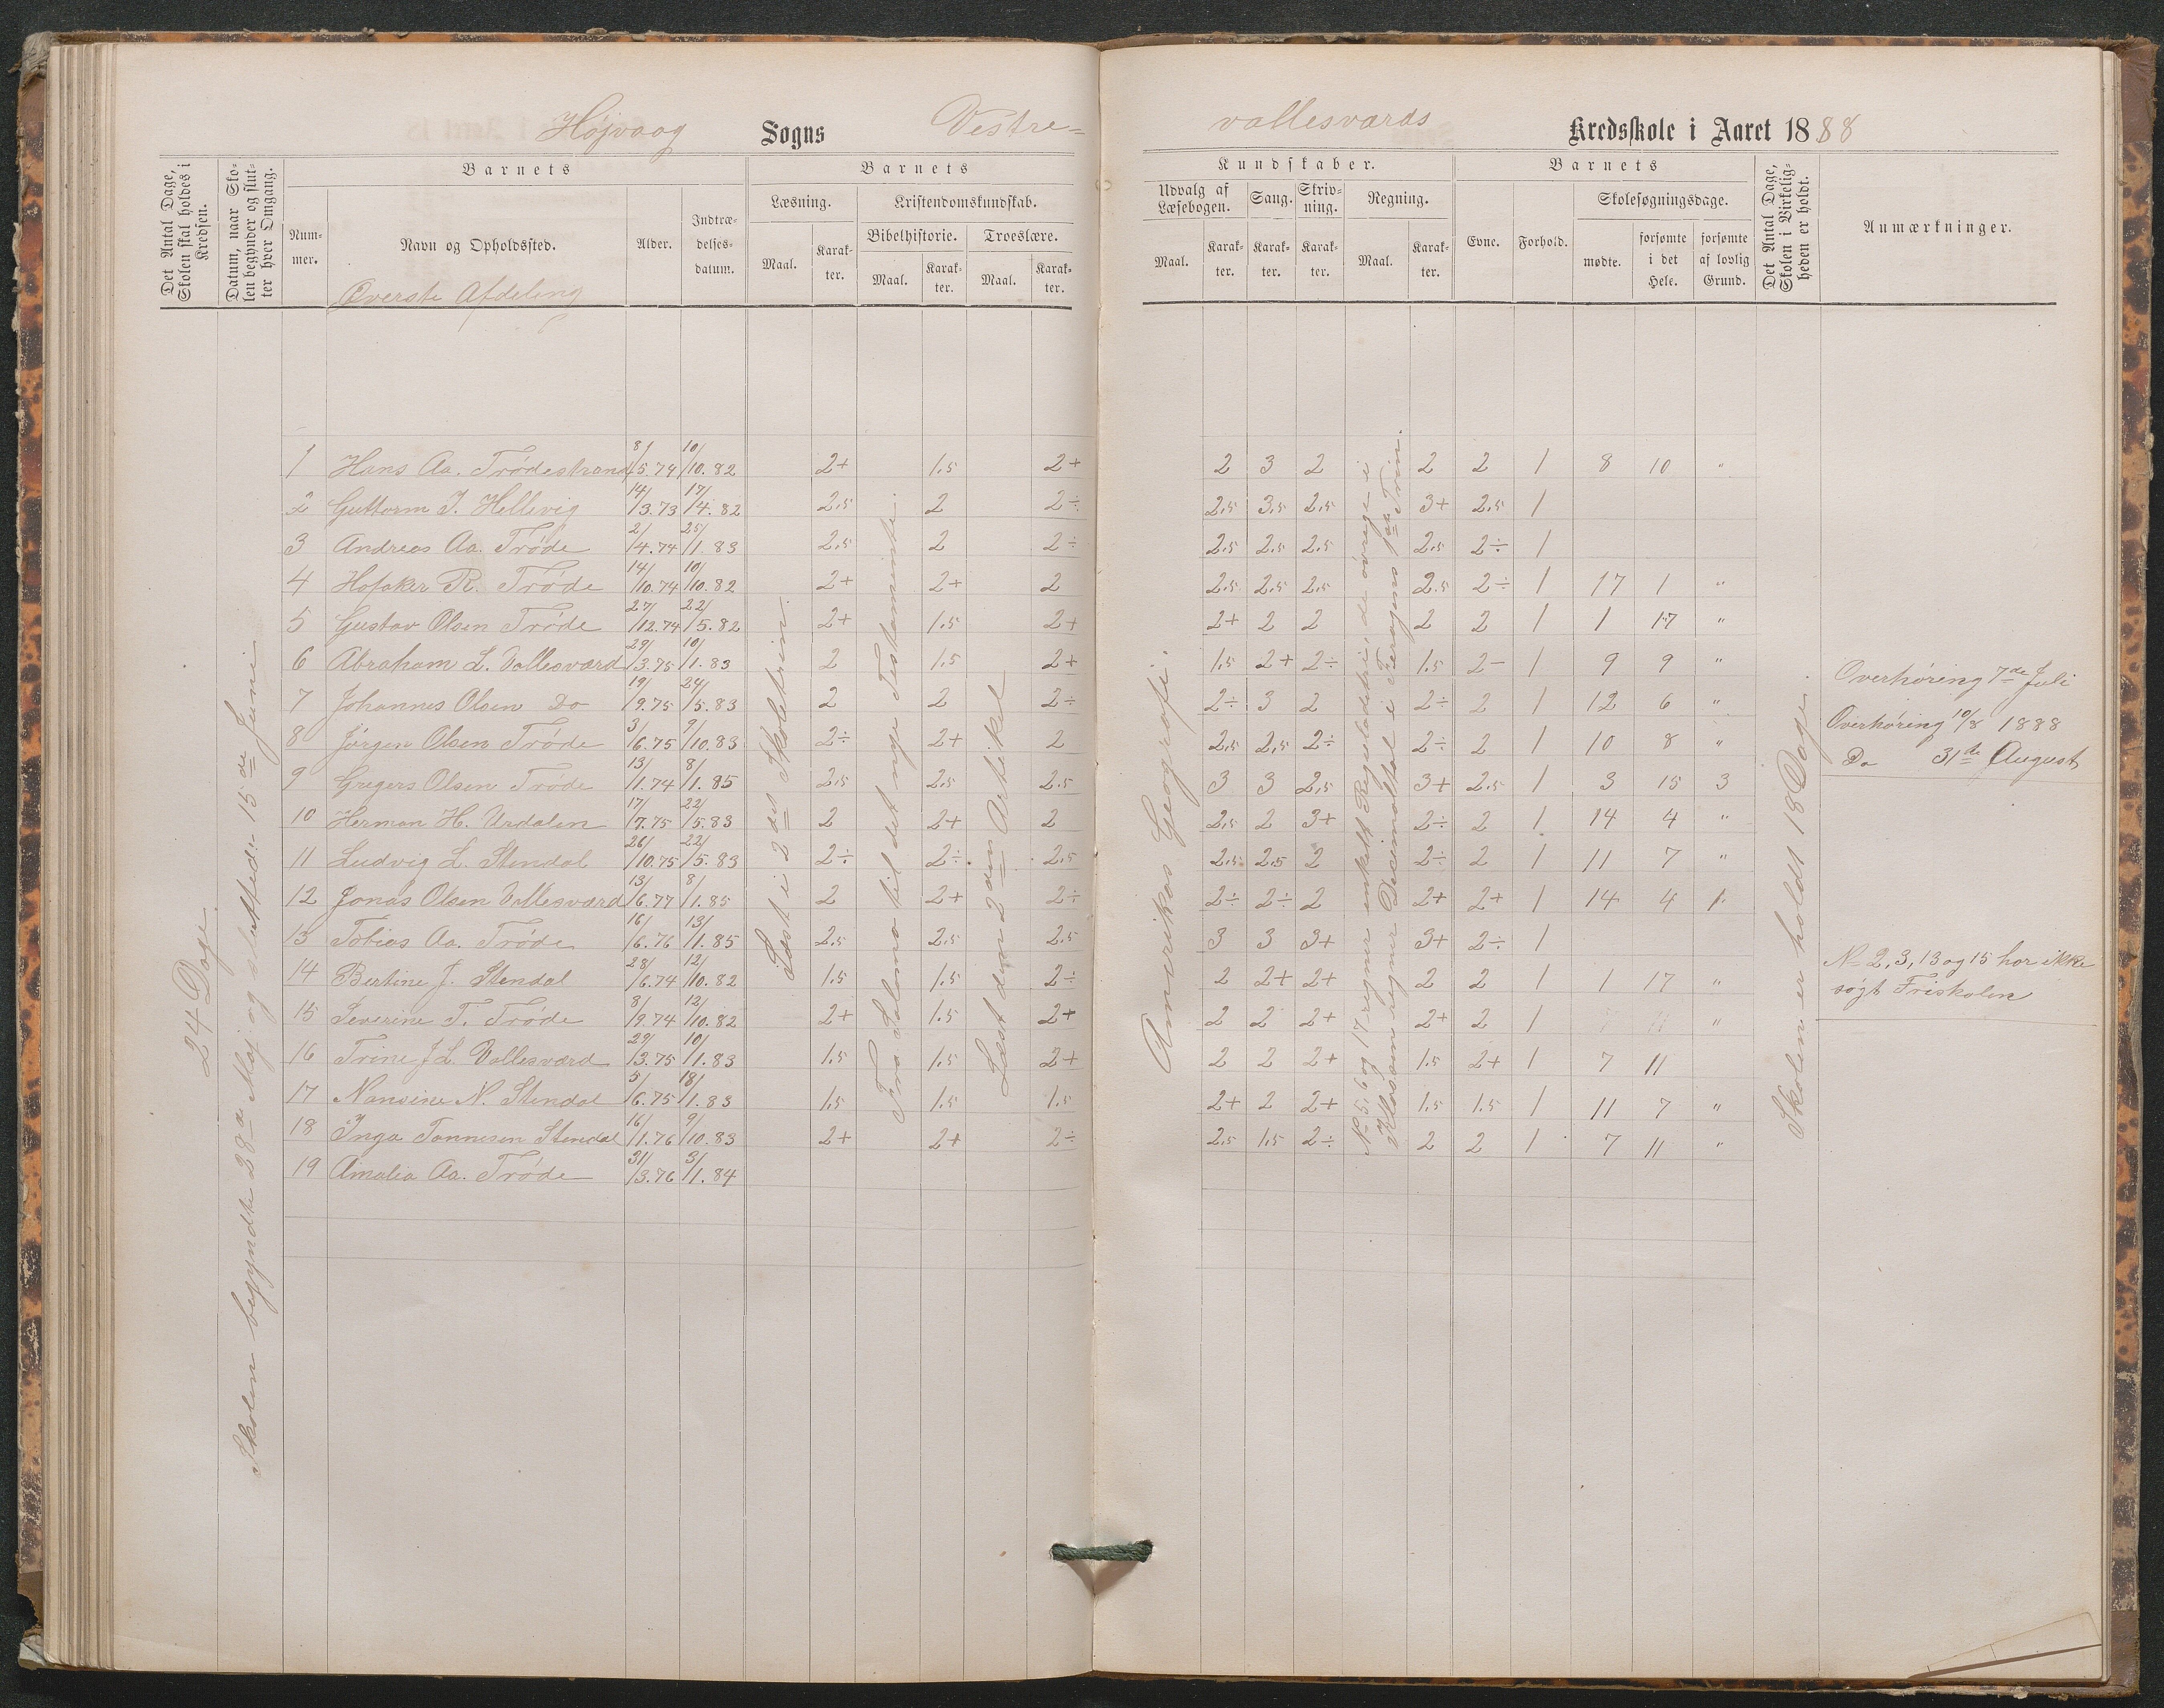 Højvaag Sogns Vestre-
vallesværds Kredsskole i Aaret 1888
Det Antal Dage, Skolen skal holdes i Kredsen.
Datum, naar Skolen begynder og slutter hver Omgang.
Barnets
Nummer.
Navn og Opholdssted.
Alder.
Indtrædelsesdatum.
Barnets
Læsning.
Maal.
Karakter.
Kristendomskundskab.
Bibelhistorie.
Maal.
Karakter.
Troeslære.
Maal.
Karakter.
Kundskaber.
Udvalg af Læsebogen.
Maal.
Karakter.
Sang.
Karakter.
Skrivning.
Karakter.
Regning.
Maal.
Karakter.
Barnets
Evne.
Forhold.
Skolesøgningsdage.
mødte.
forsømte i det Hele.
forsømte af lovlig Grund.
Det Antal Dage, Skolen i Virkeligheden er holdt.
Anmærkninger.
Øverste Afdeling
24 Dage.
Skolen begyndte 28de Maj og sluttede 15de Juni
Læst i 2det Skoletrin.
Fra Salomo til det nye Testamente.
Læst den 2den Artikel
Amerikas Geografi.
Nr 5, 6 og 17 regner enkelt Regeladetri, de øvrige i
Klassen regner Decimaltal i Feragens 1ste Trin.
Skolen er holdt 18 Dage.
1 Hans Aa. Trødestrand 8/5.74 10/10.82 2+ 1.5 2+ 2 3 2 2 2 1 8 10 "
2 Guttorm J. Hellevig 14/3.73 17/4.82 2.5 2 2÷ 2.5 3.5 2.5 3+ 2.5 1
3 Andreas Aa. Trøde 2/4.74 25/1.83 2.5 2 2÷ 2.5 2.5 2.5 2.5 2÷ 1
4 Hofaker R. Trøde 14/10.74 10/10.82 2+ 2+ 2 2.5 2.5 2.5 2.5 2÷ 1 17 1 "
5 Gustav Olsen Trøde 27/12.74 22/5.82 2+ 1.5 2+ 2+ 2 2 2 2 1 1 17 "
6 Abraham L. Vallesværd 29/3.75 10/1.83 2 1.5 2+ 1.5 2+ 2÷ 1.5 2- 1 9 9 "
7 Johannes Olsen Do 19/9.75 24/5.83 2 2 2÷ 2÷ 3 2 2÷ 2 1 12 6 "
8 Jørgen Olsen Trøde 3/6.75 9/10.83 2÷ 2+ 2 2.5 2.5 2÷ 2÷ 2 1 10 8 "
9 Gregers Olsen Trøde 13/1.74 8/1.85 2.5 2.5 2.5 3 3 2.5 3+ 2.5 1 3 15 3
10 Herman H. Urdalen 17/7.75 22/5.83 2 2+ 2 2.5 2 3+ 2÷ 2 1 14 4 "
11 Ludvig L. Stendal 26/10.75 22/5.83 2÷ 2÷ 2.5 2.5 2.5 2 2÷ 2 1 11 7 "
12 Jonas Olsen Vallesværd 13/6.77 8/1.85 2 2+ 2÷ 2÷ 2÷ 2 2+ 2+ 1 14 4 1
13 Tobias Aa. Trøde 16/6.76 13/1.85 2.5 2.5 2.5 3 3 3+ 3+ 2÷ 1
14 Bertine J. Stendal 28/6.74 12/10.82 1.5 1.5 2÷ 2 2+ 2+ 2 2 1 1 17 "
15 Severine T. Trøde 8/9.74 12/10.82 2+ 1.5 2+ 2 2 2+ 2+ 2 1 "
16 Trine J L. Vallesværd 29/3.75 10/1.83 1.5 1.5 2+ 2 2 2+ 1.5 2+ 1 7 11
17 Nansine N. Stendal 5/6.75 18/1.83 1.5 1.5 1.5 2+ 2 2+ 1.5 1.5 1 11 7 "
18 Inga Tønnesen Stendal 16/1.76 9/10.83 2+ 2+ 2÷ 2.5 1.5 2÷ 2 2 1 7 11 "
19 Amalia Aa. Trøde 31/3.76 3/1.84
Overhøring 7de Juli
Overhøring 10/8 1888
Do 31te August
No 2, 3, 13 og 15 har ikke
søgt Friskolen